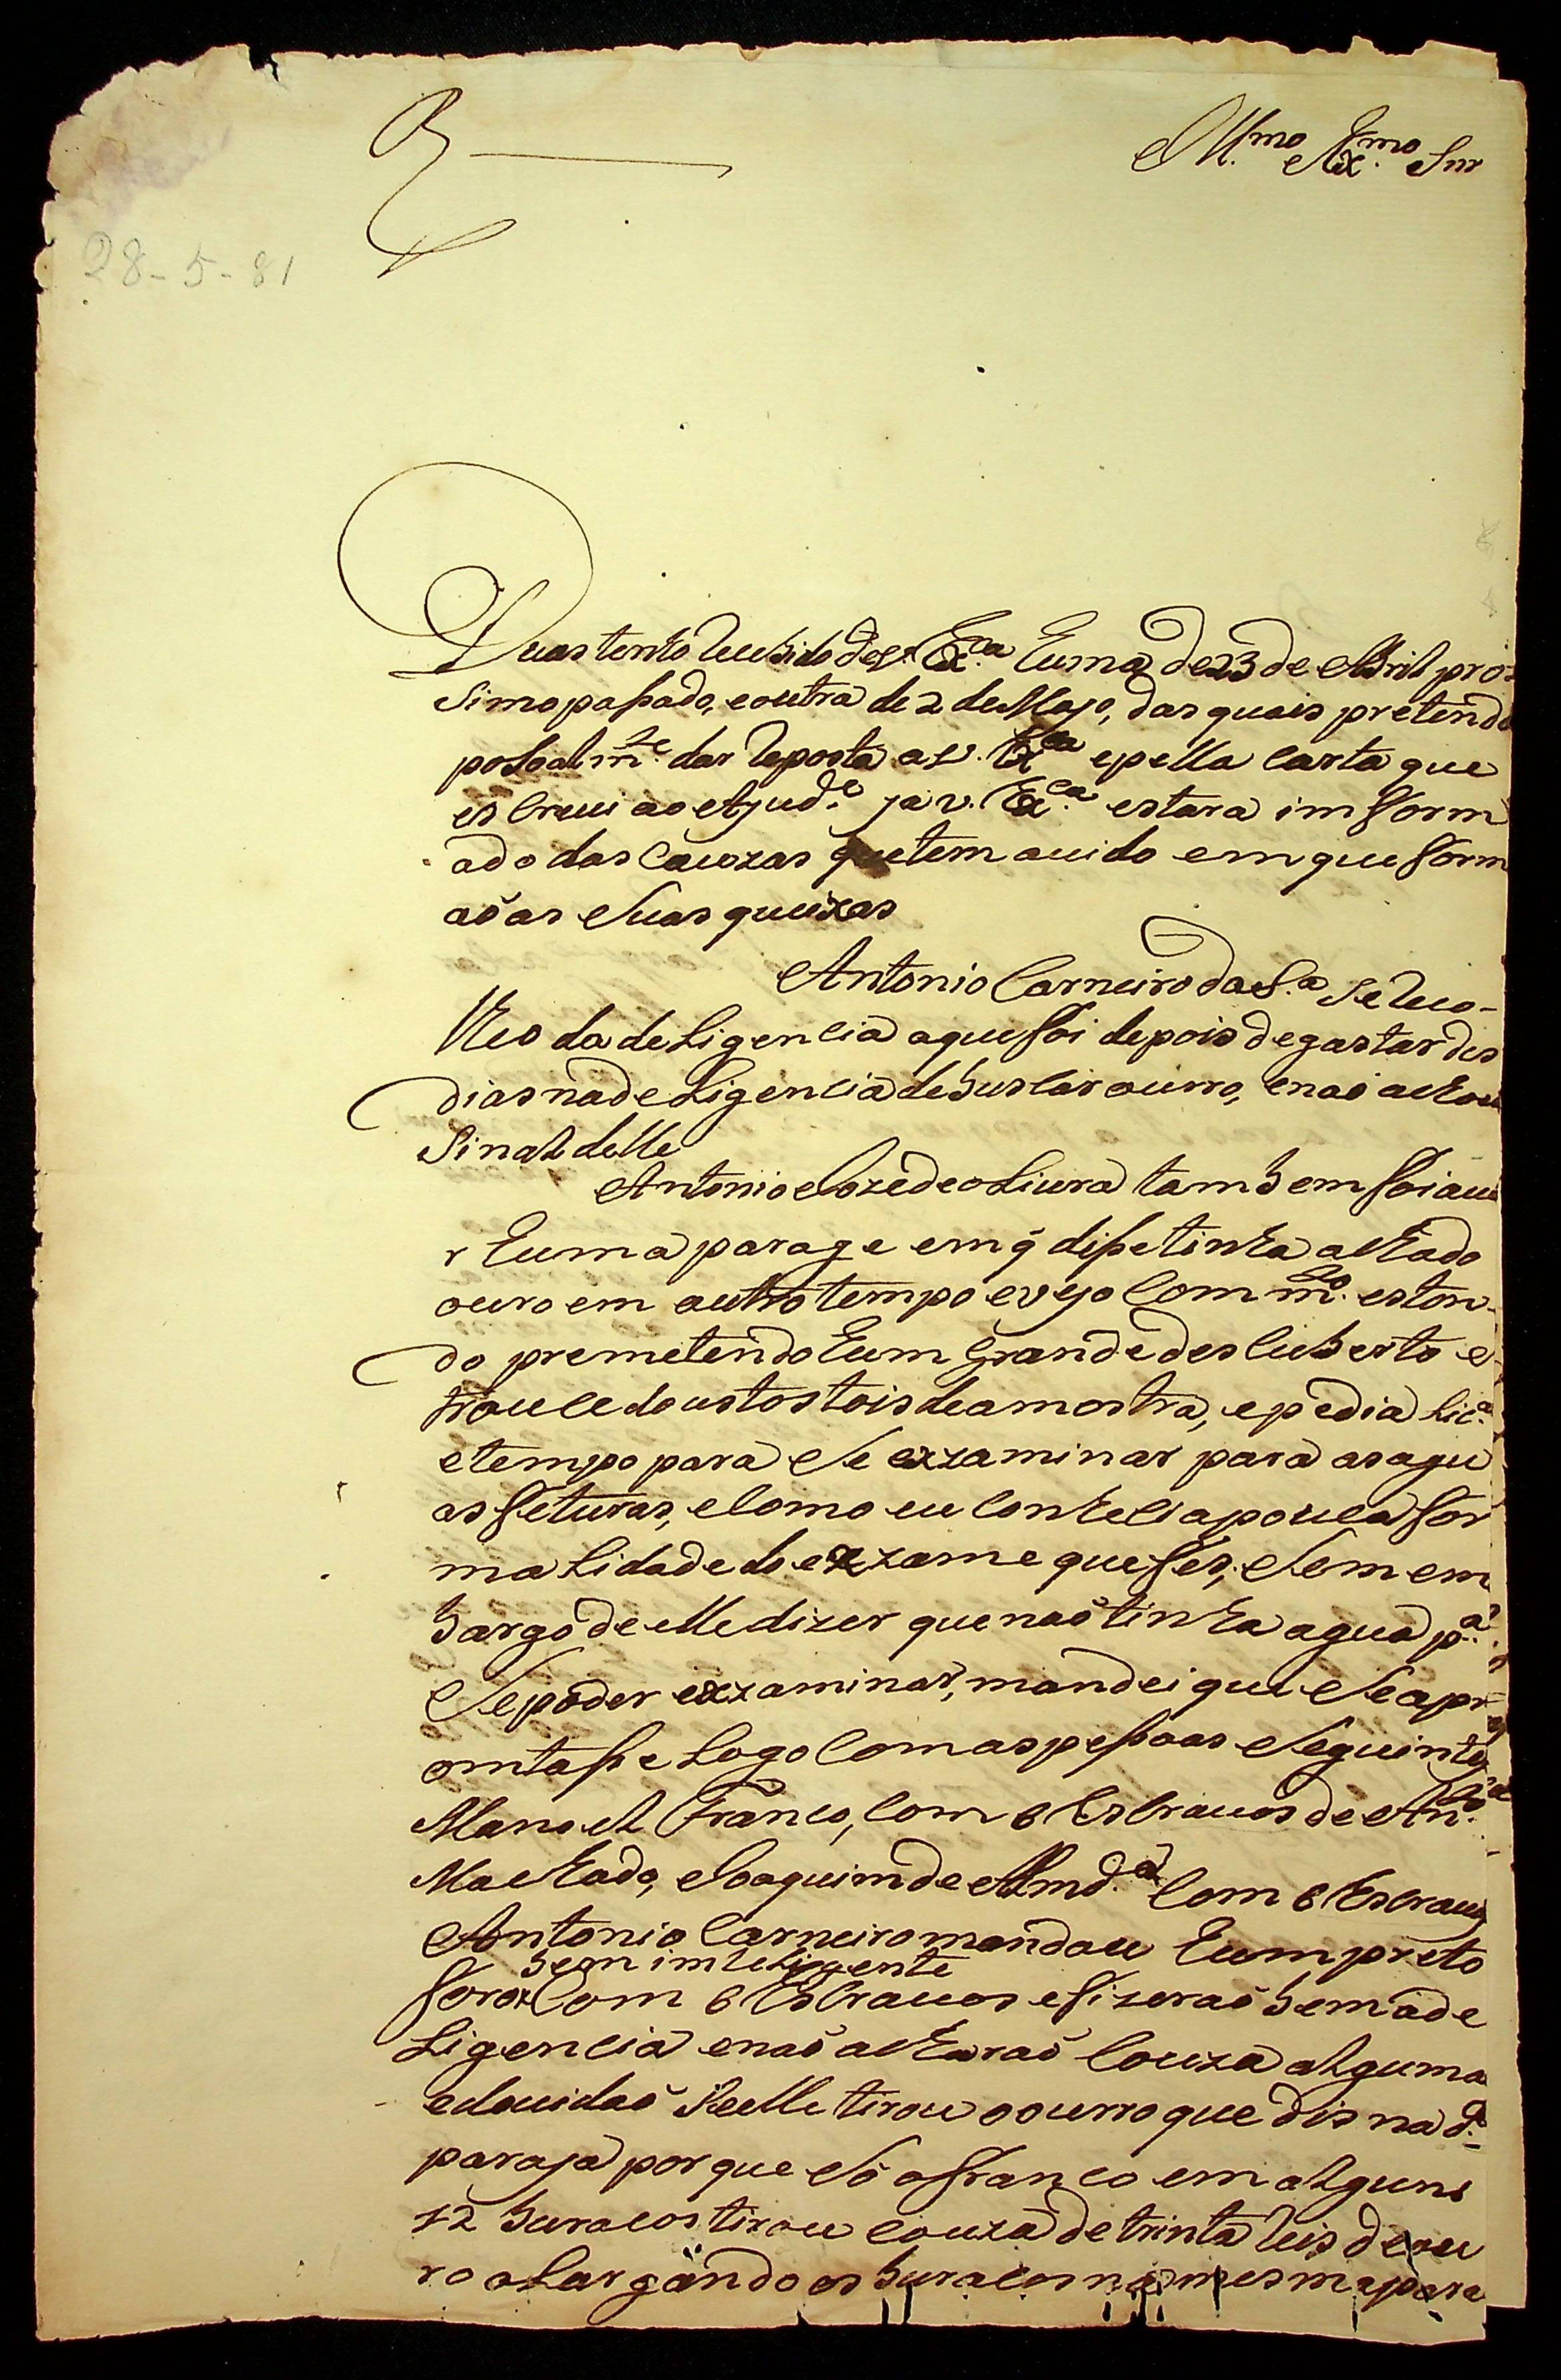 R
Ill.mo Ex.mo Snr
28-5-81
Duas tenho Recebido de V. Ex.ca huma de 23 de Abril pro-
Simo paßado, e outra de 2 de Mayo, das quais pretendo
posoalm.te dar Reposta a V. Ex.ca e pella carta que
escrevi ao Ajud.e ja v. Ex.ca estara imform
ado das Cauzas que tem avido em que form
aõ as Suas queixas
Antonio Carneiro da S.a Se Reco-
lheo da deLigencia a que foi depois de gastar des
dias na deLigencia de buscar ourro, e naõ achou
Sinal delle
Antonio Joze de oLivra tambem foi aue
r huma parage em q̃ diße tinha achado
ouro em outro tempo e veyo Com m.to eston-
do premetendo hum Grande descuberto e
trouce do ustostois de amostra, e pedia Lic.a
e tempo para Se exzaminar para as agu
as feturas, e Como eu Conhecia pouca for
maLidade do exzame que fes, Sem em
bargo de elle dizer que naõ tinha agua p.a
Se poder exzaminar, mandei que Se apr
omtaße Logo Com as peßoas Seguintes
Manoel Franco, Com 6 Escravos de An.to
Machado, Joaquim de Almd.a Com 6 Escravos
Antonio Carneiro mandou hum preto
bem imteLigente
forox Com 6 Escravos e fizeraõ bem a de
Ligencia e naõ acharaõ Couza alguma
e douidaõ Se elle tirou o ourro que dis na d.a
paraja porque Só o Franco em alguns
12 buracos tirou couza de trinta Reis de ou
ro aLargando os buracos na mesma para